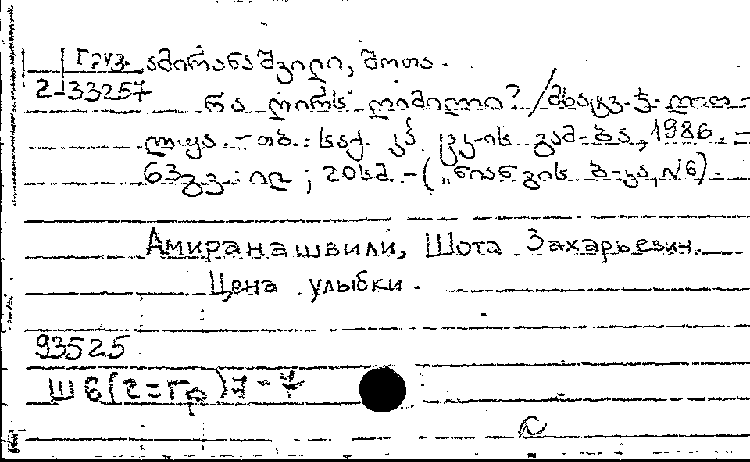 Груз. ამირანაშვილი, შოთა.
2-33257
რა ღირს ღიმილი? /მხატვ. ჭ.
- თბ.: საქ. კპ ცკ-ის გამ-ბა, 1986. -
63გვ.: ილ; 20სმ. - („ნიანგის ბ-კა, №6).
Амиранашвили, Шота Захарьевич.
Цена улыбки.
93525
Ш6(2=Гр)7-4